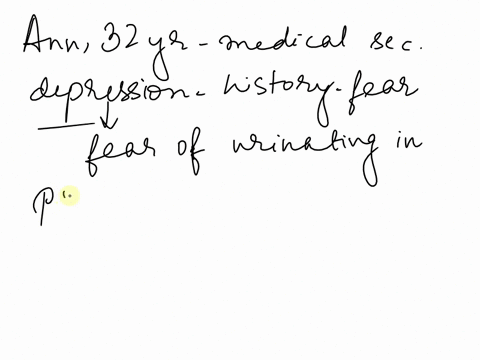 Ann, 32 yr - medical sec.
depression - history - fear
fear of urinating in
p